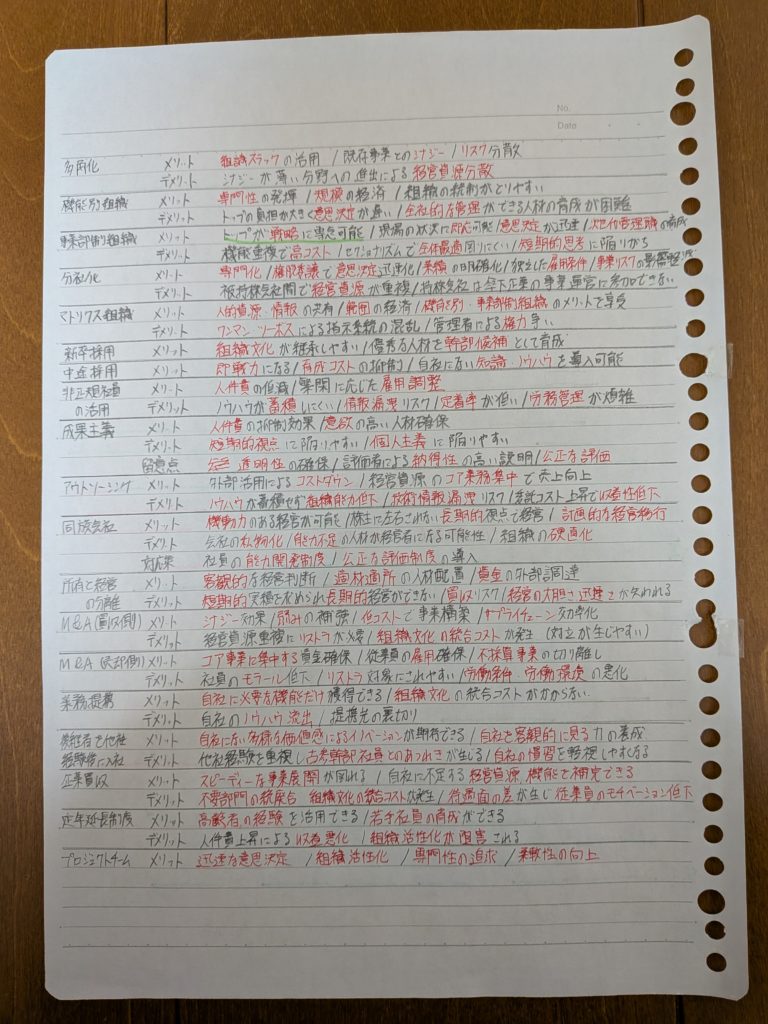 No.
Date
多角化 メリット 組織スラックの活用 / 既存事業とのシナジー / リスク分散
デメリット シナジーが薄い分野への進出による経営資源分散
機能別組織 メリット 専門性の発揮 / 規模の経済 / 組織の統制がとりやすい
デメリット トップの負担が大きく意思決定が遅い / 全社的な管理ができる人材の育成が困難
事業部制組織 メリット トップが戦略に専念可能 / 現場の状況に即応可能 / 意思決定が迅速 / 次世代管理職の育成
デメリット 機能重複で高コスト / セクショナリズムで全体最適図りにくい / 短期的思考に陥りがち
分社化 メリット 専門化 / 権限委譲で意思決定迅速化 / 業績の明確化 / 独立した雇用条件 / 事業リスクの影響軽減
デメリット 被持株会社間で経営資源が重複 / 持株会社は傘下企業の事業運営に参加できない
マトリクス組織 メリット 人的資源・情報の共有 / 範囲の経済 / 機能別・事業部制組織のメリットを享受
デメリット ワンマン・ツーボスによる指示系統の混乱 / 管理者による権力争い
新卒採用 メリット 組織文化が継承しやすい / 優秀な人材を幹部候補として育成
中途採用 メリット 即戦力になる / 育成コストの抑制 / 自社にない知識・ノウハウを導入可能
非正規社員 メリット 人件費の低減 / 繁閑に応じた雇用調整
の活用 デメリット ノウハウが蓄積しにくい / 情報漏洩リスク / 定着率が低い / 労務管理が煩雑
成果主義 メリット 人件費の抑制効果 / 意欲の高い人材確保
デメリット 短期的視点に陥りやすい / 個人主義に陥りやすい
留意点 透明性の確保 / 評価者による納得性の高い説明 / 公正な評価
アウトソーシング メリット 外部活用によるコストダウン / 経営資源のコア業務集中で売上向上
デメリット ノウハウが蓄積せず組織能力低下 / 技術情報漏洩リスク / 委託コスト上昇で収益性低下
同族会社 メリット 機動力のある経営が可能 / 株主に左右されない長期的視点で経営 / 計画的な経営移行
デメリット 会社の私物化 / 能力不足の人材が経営者になる可能性 / 組織の硬直化
対応策 社員の能力開発制度 / 公正な評価制度の導入
所有と経営 メリット 客観的な経営判断 / 適材適所の人材配置 / 資金の外部調達
の分離 デメリット 短期的実積を求められ長期的経営ができない / 買収リスク / 経営の大胆さ迅速さが失われる
M&A(買収側) メリット シナジー効果 / 弱みの補強 / 低コストで事業構築 / サプライチェーン効率化
デメリット 経営資源重複にリストラが必要 / 組織文化の統合コストが発生 (対立が生じやすい)
M&A(売却側) メリット コア事業に集中する資金確保 / 従業員の雇用確保 / 不採算事業の切り離し
デメリット 社員のモラール低下 / リストラ対象にされやすい / 労働条件・労働環境の悪化
業務提携 メリット 自社に必要な機能だけ獲得できる / 組織文化の統合コストがかからない
デメリット 自社のノウハウ流出 / 提携先の裏切り
後継者を他社 メリット 自社にない多様な価値感によるイノベーションが期待できる / 自社を客観的に見る力の養成
経験後に入社 デメリット 他社経験を重視し古参幹部社員とのあつれきが生じる / 自社の慣習を軽視しやすくなる
企業買収 メリット スピーディーな事業展開が図れる / 自社に不足する経営資源、機能を補完できる
デメリット 不要部門の統廃合 組織文化の統合コストが発生 / 待遇面の差が生じ従業員のモチベーション低下
定年延長制度 メリット 高齢者の経験を活用できる / 若手社員の育成ができる
デメリット 人件費上昇による収益悪化 / 組織活性化が阻害される
プロジェクトチーム メリット 迅速な意思決定 / 組織活性化 / 専門性の追求 / 柔軟性の向上